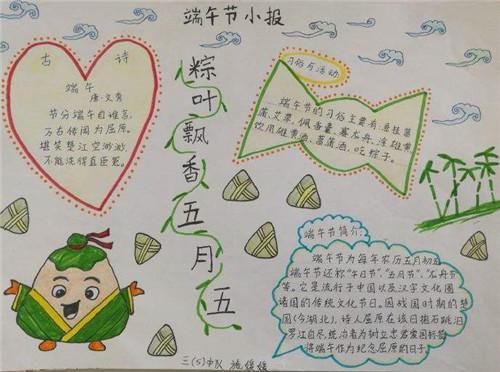 端午节小报
古 诗
端午
唐·文秀
节分端午自谁言,
万古传闻为屈原。
堪笑楚江空渺渺,
不能洗得直臣冤。
粽叶飘香五月五
习俗与活动
端午节的习俗主要有:悬挂菖
蒲、艾草、佩香囊、赛龙舟、
饮用雄黄酒、菖蒲酒、吃粽子。
端午节简介:
端午节为每年农历五月初五
端午节还称“午日节”、“五月节”、“龙舟节
等。它是流行于中国以及汉字文化圈
诸国的传统文化节日。因战国时期的楚
国(今湖北),诗人屈原在该日抱石跳汨
罗江自尽,统治者为树立忠君爱国标签
将端午作为纪念屈原的日子。
三(5)中队